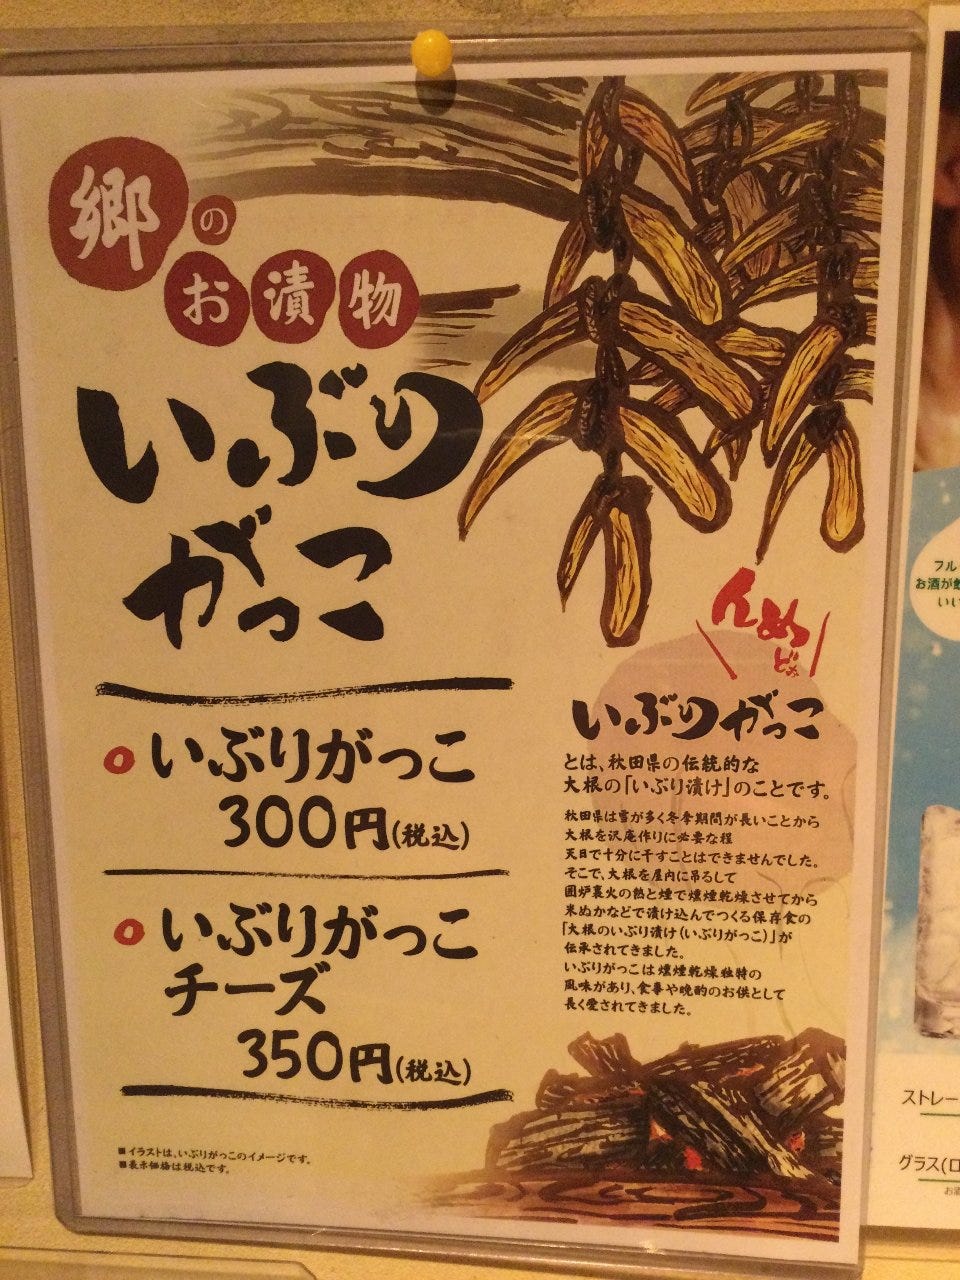 郷の
お漬物
いぶり
がっこ
いぶりがっこ
300円(税込)
いぶりがっこ
チーズ
350円(税込)
■イラストは、いぶりがっこのイメージです。
■表示価格は税込です。
んめっ
どぉ
いぶりがっこ
とは、秋田県の伝統的な
大根の「いぶり漬け」のことです。
秋田県は雪が多く冬季期間が長いことから
大根を沢庵作りに必要な程
天日で十分に干すことはできませんでした。
そこで、大根を屋内に吊るして
囲炉裏火の熱と煙で燻煙乾燥させてから
米ぬかなどで漬け込んでつくる保存食の
「大根のいぶり漬け(いぶりがっこ)」が
伝承されてきました。
いぶりがっこは燻煙乾燥独特の
風味があり、食事や晩酌のお供として
長く愛されてきました。
フル
お酒が
いい
ストレー
グラス(ロ
お酒